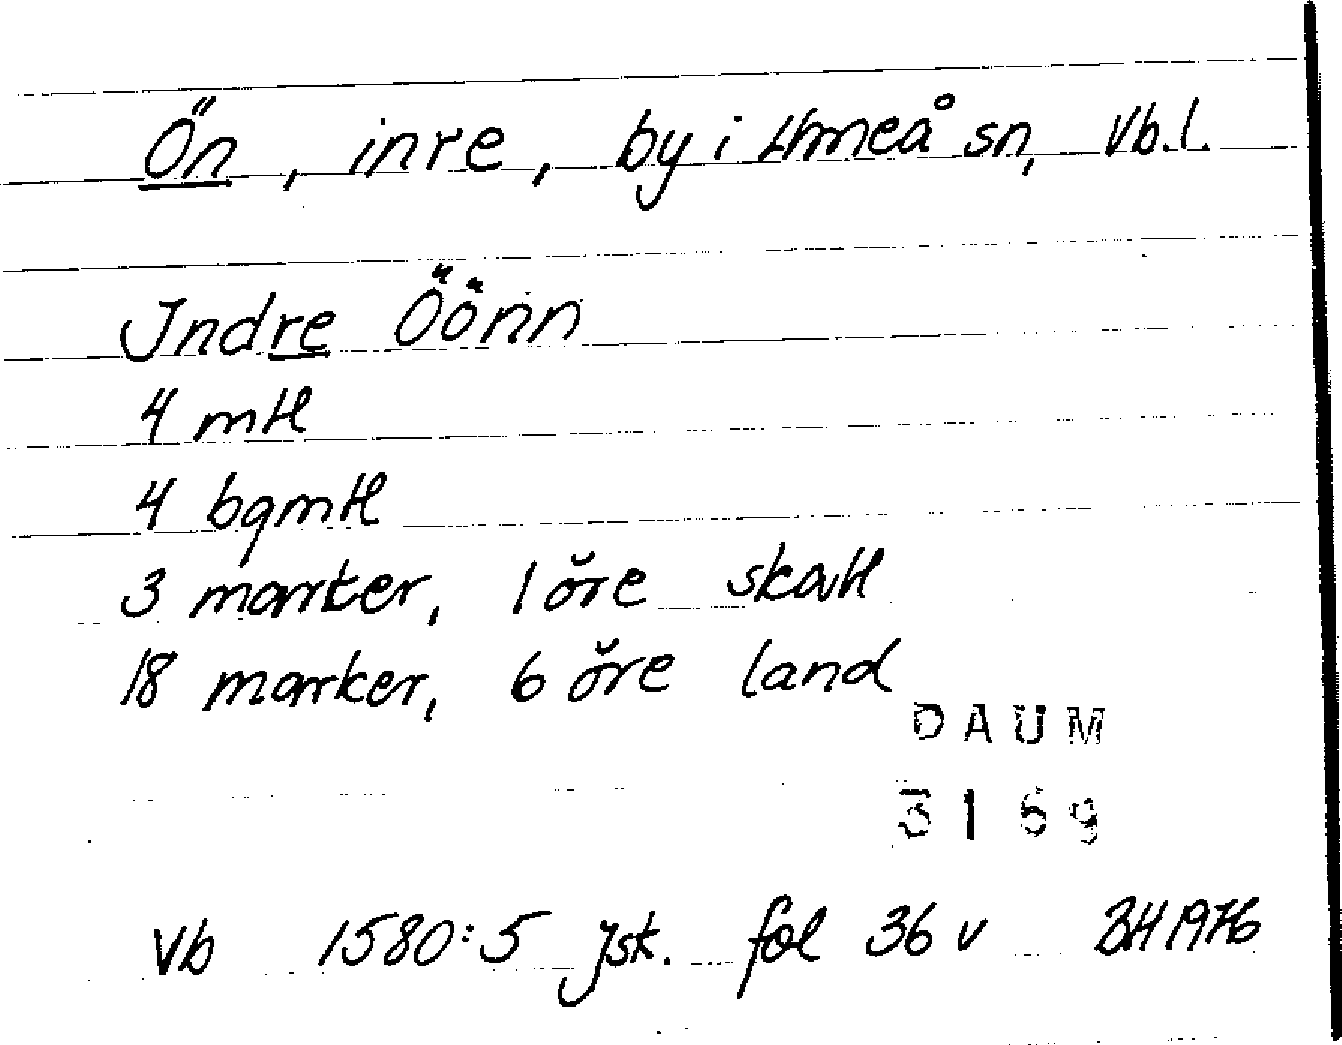 Ön, inre, by i Umeå sn, Vb.l.
Jndre Öönn
4 mtl
4 bgmtl
3 marker, 1 öre skatt
18 marker, 6 öre land
DAUM
3169
Vb 1580:5 jsk. fol 36 v BH 1976